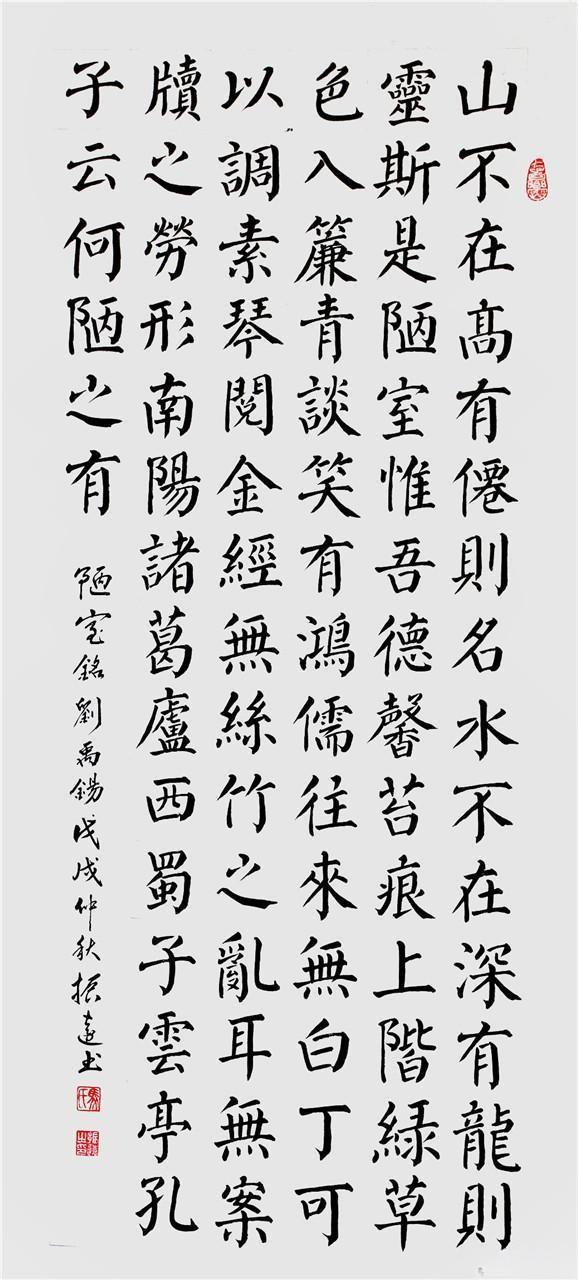 山不在髙有僊則名水不在深有龍則
靈斯是陋室惟吾德馨苔痕上階緑草
色入簾青談笑有鴻儒往來無白丁可
以調素琴閲金經無絲竹之亂耳無案
牘之勞形南陽諸葛廬西蜀子雲亭孔
子云何陋之有
陋室銘劉禹錫戊戌仲秋振遠书